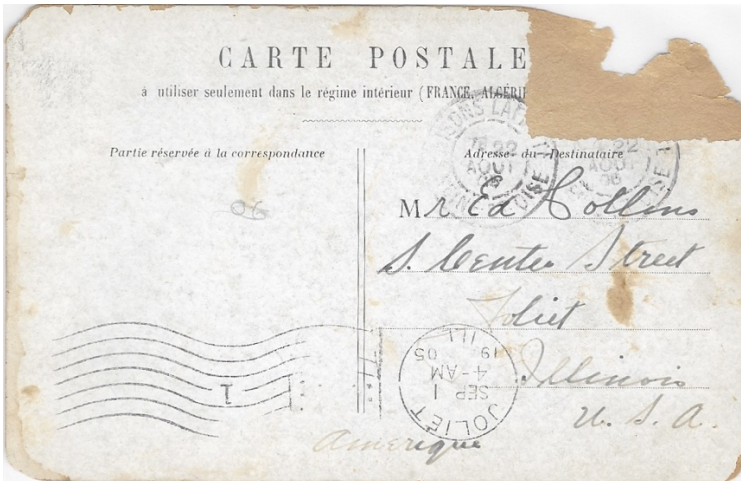 CARTE POSTALE
à utiliser seulement dans le régime intérieur (FRANCE, ALGÉRI
Partie réservée à la correspondance
Adresse du Destinataire
22
AOUT
OISE
22
AOUT
Mr Ed Collins
S. Center Street
Joliet
Illinois
U. S. A.
Amerique
JOLIET
SEP 1
4-AM
1905
ILL
1